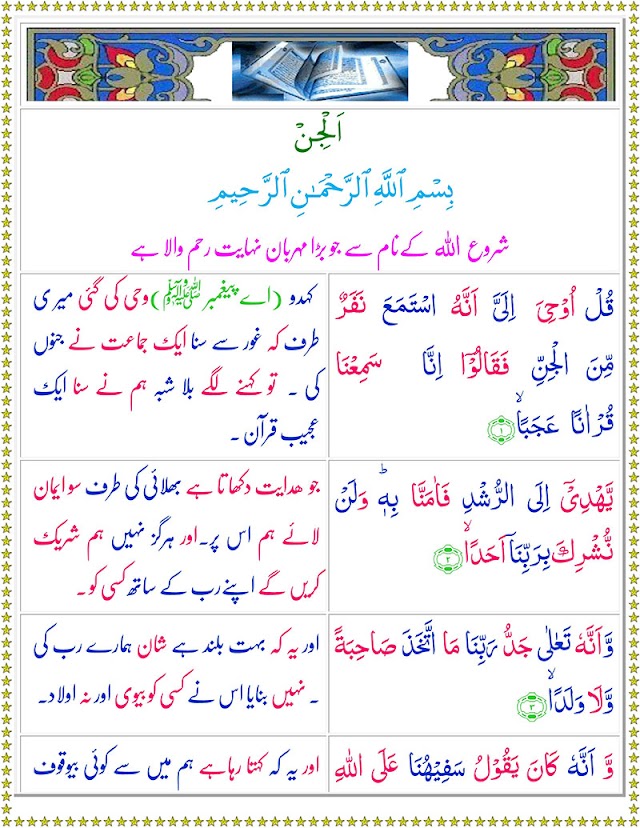 اَلْجِنّ
بِسْمِ ٱللَّهِ ٱلرَّحْمَـٰنِ ٱلرَّحِيمِ
شروع اللہ کے نام سے جو بڑا مہربان نہایت رحم والا ہے
قُلْ اُوْحِیَ اِلَیَّ اَنَّهُ اسْتَمَعَ نَفَرٌ
مِّنَ الْجِنِّ فَقَالُوْۤا اِنَّا سَمِعْنَا
قُرْاٰنًا عَجَبًاۙ ۝۱
کہدو (اے پیغمبر ﷺ) وحی کی گئی میری
طرف کہ غور سے سنا ایک جماعت نے جنوں
کی ۔ تو کہنے لگے بلا شبہ ہم نے سنا ایک
عجیب قرآن ۔
یَّهْدِیْۤ اِلَی الرُّشْدِ فَاٰمَنَّا بِهٖؕ وَلَنْ
نُّشْرِكَ بِرَبِّنَاۤ اَحَدًاۙ ۝۲
جو ھدایت دکھاتا ہے بھلائی کی طرف سو ایمان
لائے ہم اس پر۔ اور ہرگز نہیں ہم شریک
کریں گے اپنے رب کے ساتھ کسی کو۔
وَّاَنَّهٗ تَعٰلٰی جَدُّ رَبِّنَا مَا اتَّخَذَ صَاحِبَةً
وَّلَا وَلَدًاۙ ۝۳
اور یہ کہ بہت بلند ہے شان ہمارے رب کی
۔ نہیں بنایا اس نے کسی کو بیوی اور نہ اولاد۔
وَّ اَنَّهٗ كَانَ یَقُوْلُ سَفِیْهُنَا عَلَی اللّٰهِ
اور یہ کہ کہتا رہا ہے ہم میں سے کوئی بیوقوف